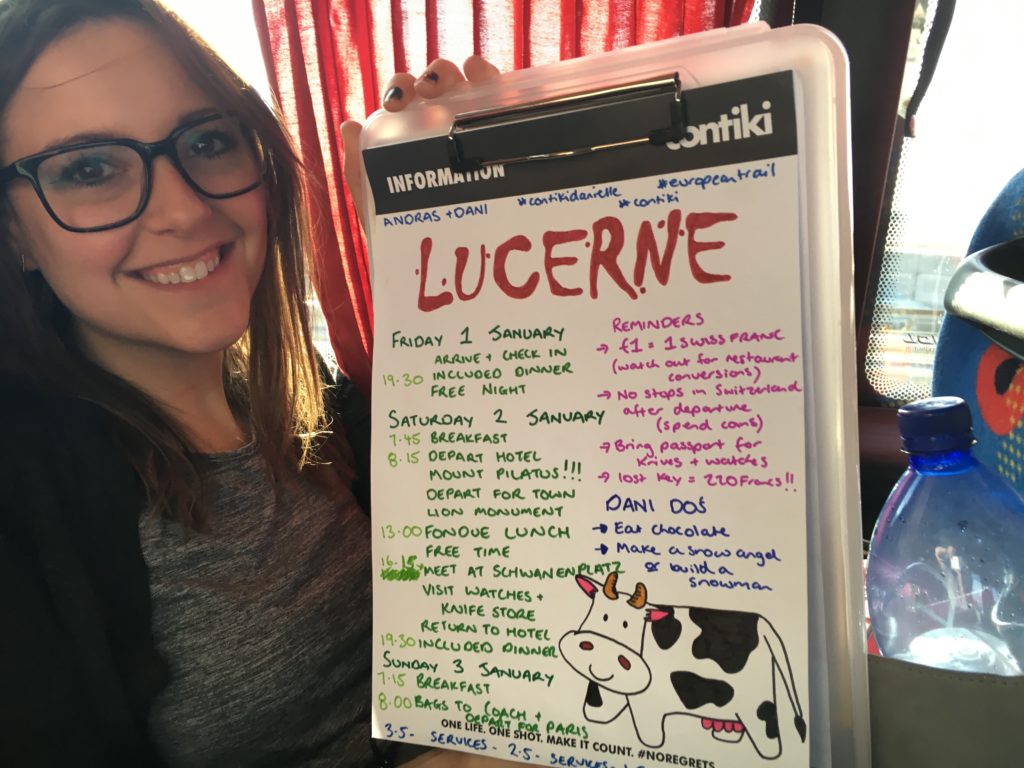 contiki
INFORMATION
ANDRAS + DANI #contikidanielle #europeantrail
#contiki
LUCERNE
FRIDAY 1 JANUARY
ARRIVE + CHECK IN
19.30 INCLUDED DINNER
FREE NIGHT
SATURDAY 2 JANUARY
7.45 BREAKFAST
8.15 DEPART HOTEL
MOUNT PILATUS!!!
DEPART FOR TOWN
LION MONUMENT
13.00 FONDUE LUNCH
FREE TIME
16.15 MEET AT SCHWANENPLATZ
VISIT WATCHES +
KNIFE STORE
RETURN TO HOTEL
19.30 INCLUDED DINNER
SUNDAY 3 JANUARY
7.15 BREAKFAST
8.00 BAGS TO COACH +
DEPART FOR PARIS
REMINDERS
→ £1 = 1 SWISS FRANC
(watch out for restaurant
conversions)
→ No stops in Switzerland
after departure
(spend coins)
→ Bring passport for
knives + watches
→ lost key = 220 Francs!!
DANI DOS
→ Eat chocolate
→ Make a snow angel
or build a
snowman
ONE LIFE. ONE SHOT. MAKE IT COUNT. #NOREGRETS
3.5 - SERVICES - 2.5 - SERVICES -